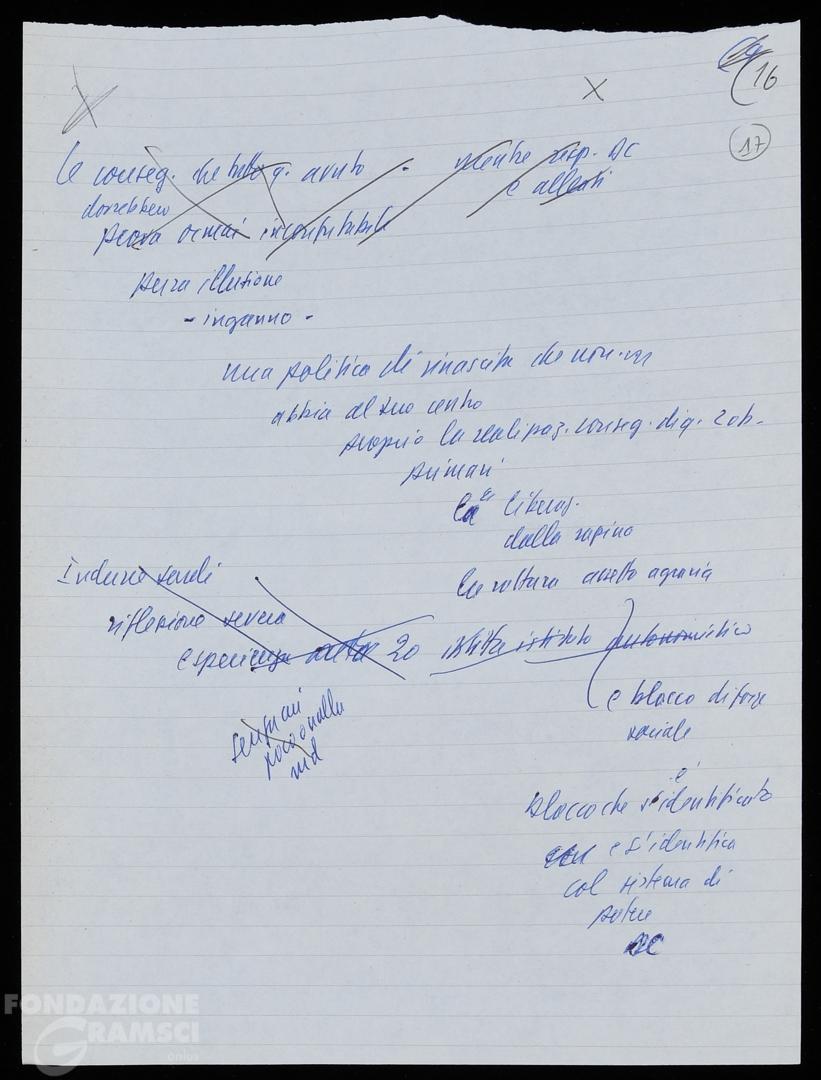 16
17
X
X
Le conseg. che tutto q. avuto - mentre resp. DC
e alleati
dovrebbero
prova ormai inconfutabile
pura illusione
- inganno -
una politica di rinascita che non
abbia al suo centro
proprio la realizzaz. conseg. diq. 2 ob.
primari
la liberaz.
dalla rapina
la rottura assetto agrario
Indurre sardi
riflessione severa
esperienza 20 istituto autonomistico
e blocco di forze
sociale
Segnani
poco o nulla
blocco che s'è identificato
e s'identifica
col sistema di
potere
DC
FONDAZIONE
GRAMSCI
onlus